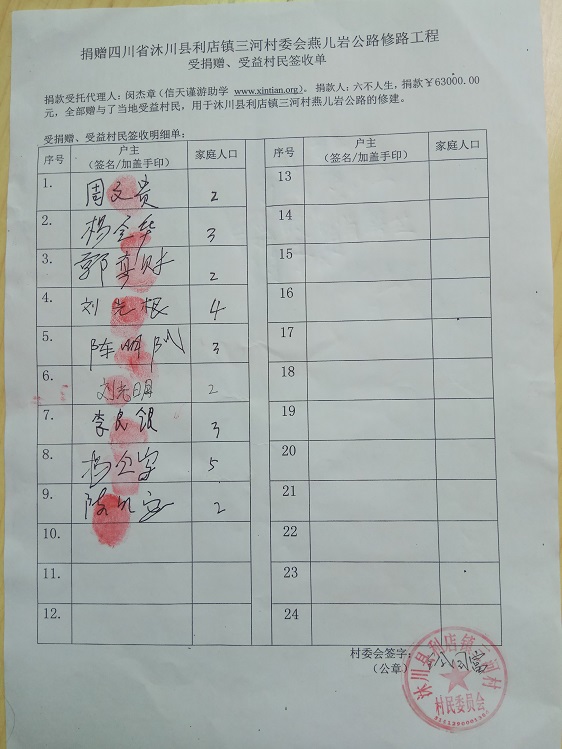 捐赠四川省沐川县利店镇三河村委会燕儿岩公路修路工程
受捐赠、受益村民签收单
捐款受托代理人：闵杰章（信天谨游助学 www.xintian.org）。捐款人：六不人生，捐款￥63000.00
元，全部赠与了当地受益村民，用于沐川县利店镇三河村燕儿岩公路的修建。
受捐赠、受益村民签收明细单：
序号 户主（签名/加盖手印） 家庭人口 序号 户主（签名/加盖手印） 家庭人口
1. 周文贵 2 13
2. 杨全华 3 14
3. 郭 财 2 15
4. 刘光根 4 16
5. 陈明 3 17
6. 刘光明 2 18
7. 李良银 3 19
8. 杨 5 20
9. 陈 2 21
10. 22
11. 23
12. 24
村委会签字：
（公章）
沐川县利店镇三河村
村民委员会